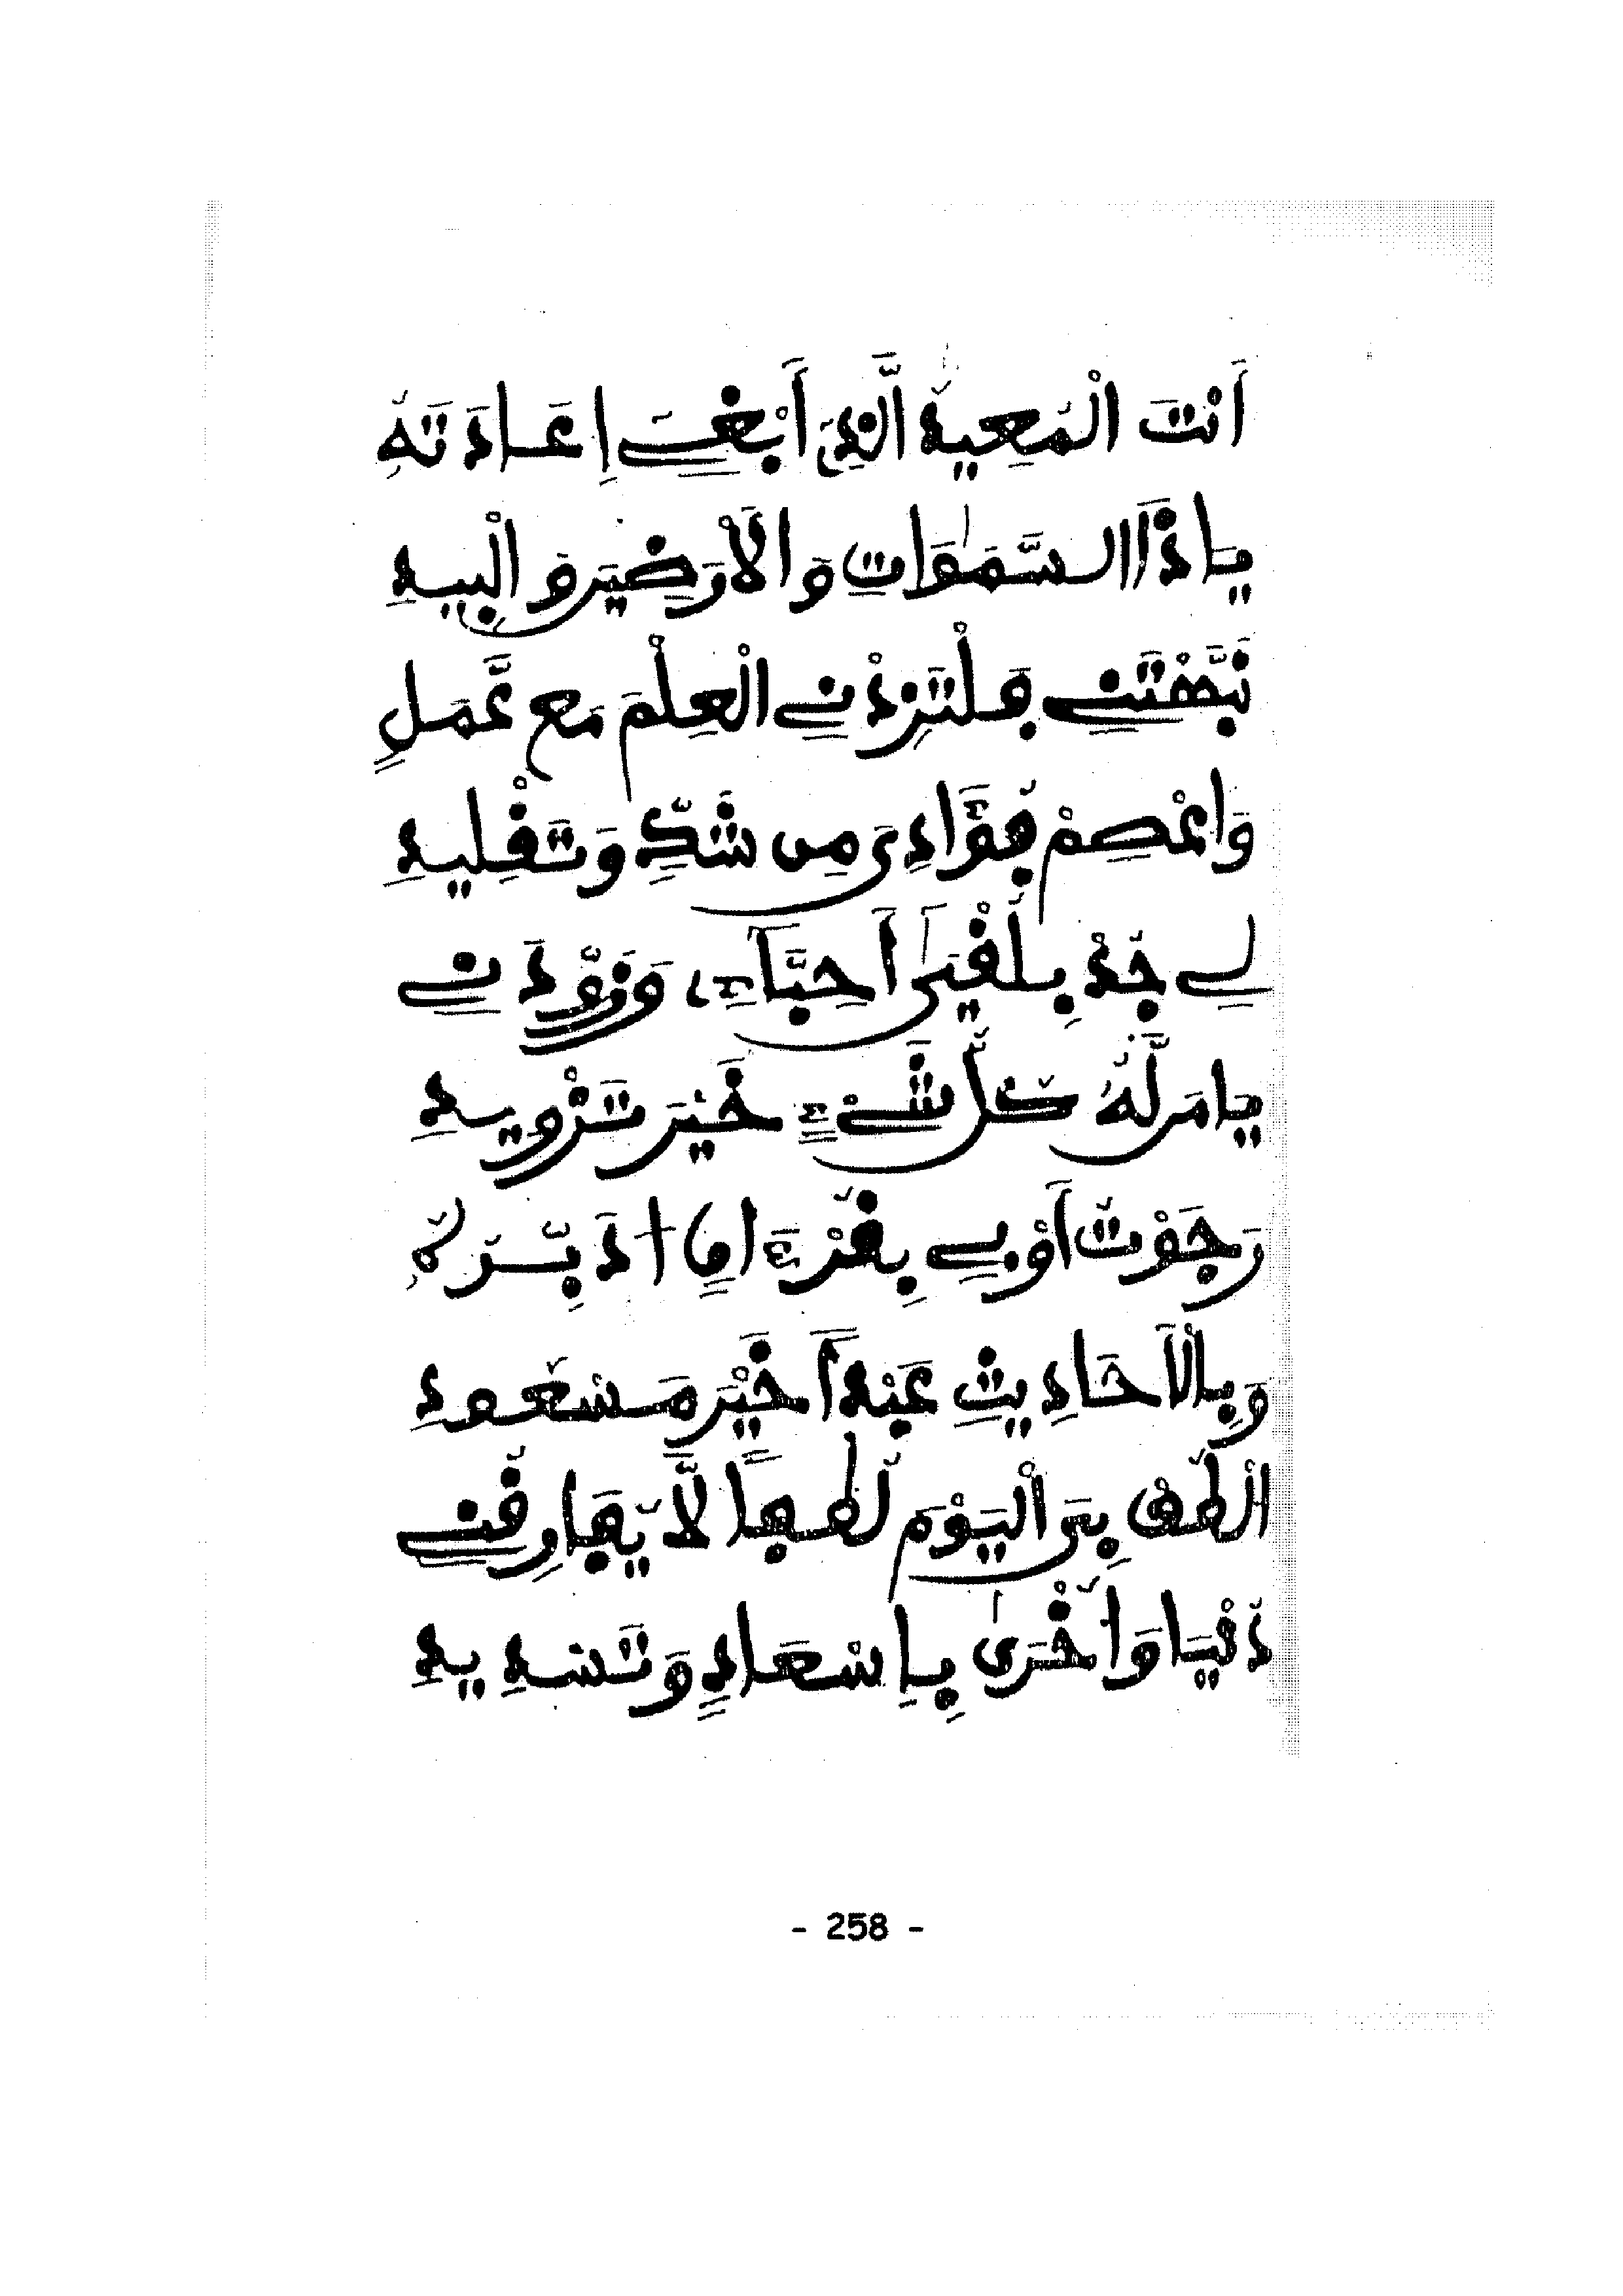 أَنتَ الْمُعِيدُ الَّذِي أَبْغِي إِعَادَتَهُ
يَاذَا السَّمَوَاتِ وَالْأَرَضِينَ وَالْبِيدِ
نَبَّهْتَنِي فَلْتَزِدْنِي الْعِلْمَ مَعْ عَمَلٍ
وَاعْصِمْ فُؤَادِيَ مِن شَكٍّ وَتَقْلِيدِ
لِي جُدْ بِلُقْيَى أَحِبَّاءِ، وَزَوِّدْنِي
يَامَن لَّهُ كُلُّ شَيْءٍ خَيْرَ تَزْوِيدِ
رَجَوْتُ أَوْبِي بِغُزْرٍ اِقَا اذَ بَرَرُهُ
وَبِالْأَحَادِيثِ عَبْدَ أَخَيْرَ مَسْعُودِ
الْطُفْ بِيَ الْيَوْمَ لُطْفاً لَّا يُفَارِقُنِي
دُنْيَا وَأُخْرَى بِإِسْعَادٍ وَتَسْدِيدِ
- 258 -